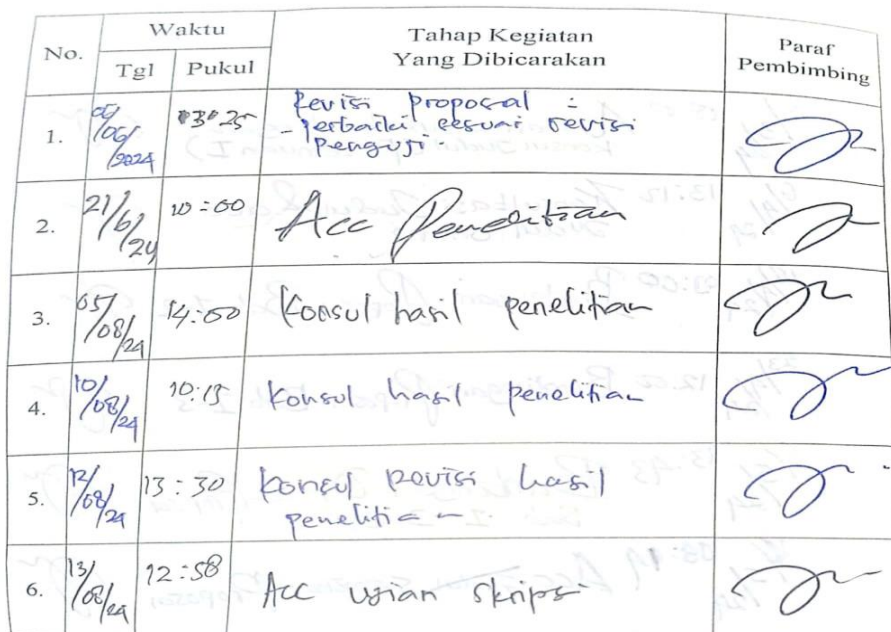 No. Waktu Tahap Kegiatan Yang Dibicarakan Paraf Pembimbing
Tgl Pukul
1. /06/2024 13:25 Revisi proposal :
- perbaiki sesuai revisi
penguji.
2. 21/6/24 10:00 Acc Penelitian
3. 05/08/24 14:00 Konsul hasil penelitian
4. 10/08/24 10:15 Konsul hasil penelitian
5. 12/08/24 13:30 Konsul Revisi hasil
penelitian
6. 13/08/24 12:58 Acc ujian skripsi